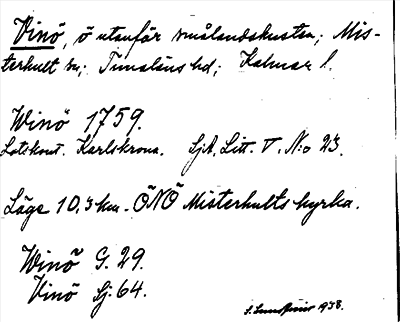 Vinö, ö utanför smålandskusten; Mis-
terhult sn; Tunaläns hd; Kalmar l.
Winö 1759.
Lotskont. Karlskrona. SjA, Litt. V. N:o 23.
Läge 10,3 km. ÖNÖ Misterhults kyrka.
Winö G. 29.
Vinö Sj. 64.
1938.